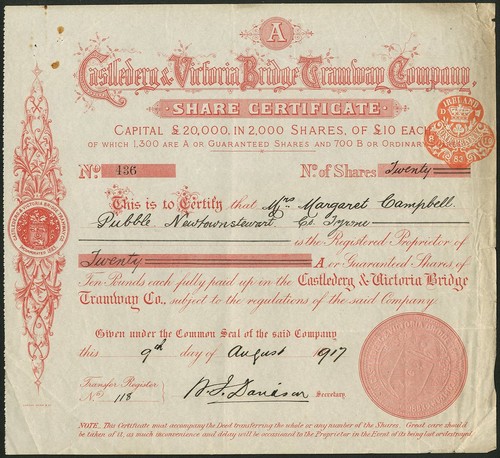 A
Castlederg & Victoria Bridge Tramway Company,
SHARE CERTIFICATE
CAPITAL £20,000, IN 2,000 SHARES, OF £10 EACH
OF WHICH 1,300 ARE A OR GUARANTEED SHARES AND 700 B OR ORDINARY
IRELAND
No 436 No. of Shares Twenty
This is to Certify that Mrs Margaret Campbell
Pubble Newtownstewart Co. Tyrone
is the Registered Proprietor of
Twenty A or Guaranteed Shares of
Ten Pounds each fully paid up in the Castlederg & Victoria Bridge
Tramway Co., subject to the regulations of the said Company
Given under the Common Seal of the said Company
this 9th day of August 1917
Transfer Register
No 118
Secretary
NOTE. This Certificate must accompany the Deed transferring the whole or any number of the Shares. Great care should
be taken of it, as much inconvenience and delay will be occasioned to the Proprietor in the Event of its being lost or destroyed.